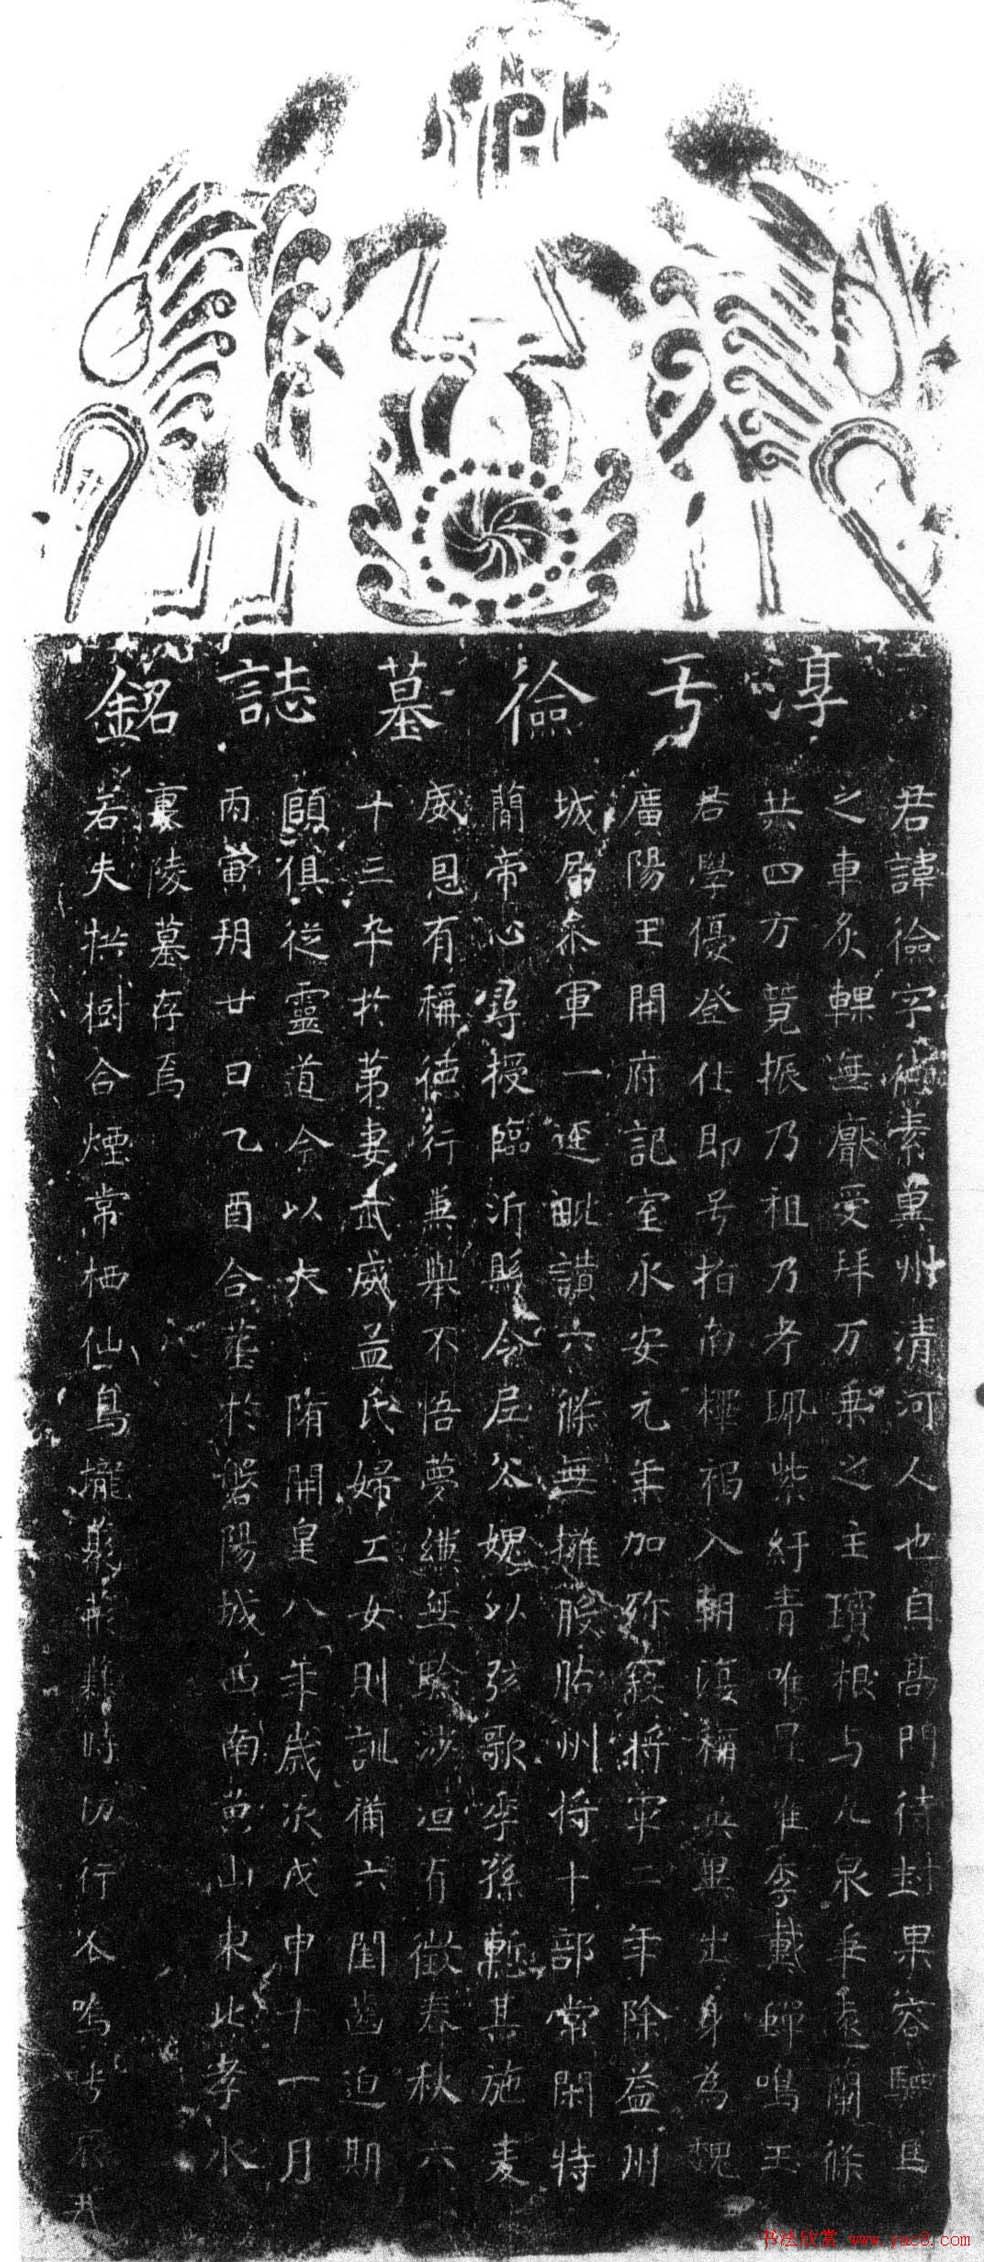 淳于儉墓誌銘
君諱儉字德素冀州清河人也自高門待封果容駟馬
之車炙輠無厭受拜万乘之主瓌根与九泉垂遠蘭條
共四方競振乃祖乃考珮紫紆青唯昆唯季戴蟬鳴玉
君學優登仕即号指南釋褐入朝復稱英果出身為魏
廣陽王開府記室永安元年加殄寇將軍二年除益州
城局參軍一逕毗讚六條無擁蔆胋州倚十部常閑特
簡帝心尋授臨沂縣令尼父媿以弦歌季孫慙其施麦
威恩有稱德行兼舉不悟夢繽無驗涉洹有徵春秋六
十三卒於第妻武威孟氏婦工女則訓備六閨齒迫期
頤俱從靈道今以大隋開皇八年歲次戊申十一月
丙寅朔廿日乙酉合葬於磐陽城西南黄山東北孝水
裏陵墓存焉
若夫拱樹合煙常栖仙鳥壠 難時仍行谷嗚呼哀哉
书法欣赏 www.yac8.com